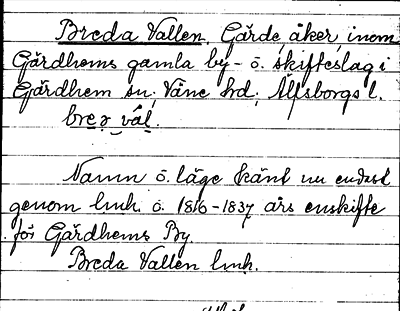 Breda Vallen. Gärde, åker inom
Gärdhems gamla by- o. skifteslag i
Gärdhem sn; Väne hd; Älfsborgs l.
bre̱ə̱ vål̲.
Namn o. läge känt nu endast
genom lmh. o. 1816-1837 års enskifte
för Gärdhems By.
Breda Vallen lmh.